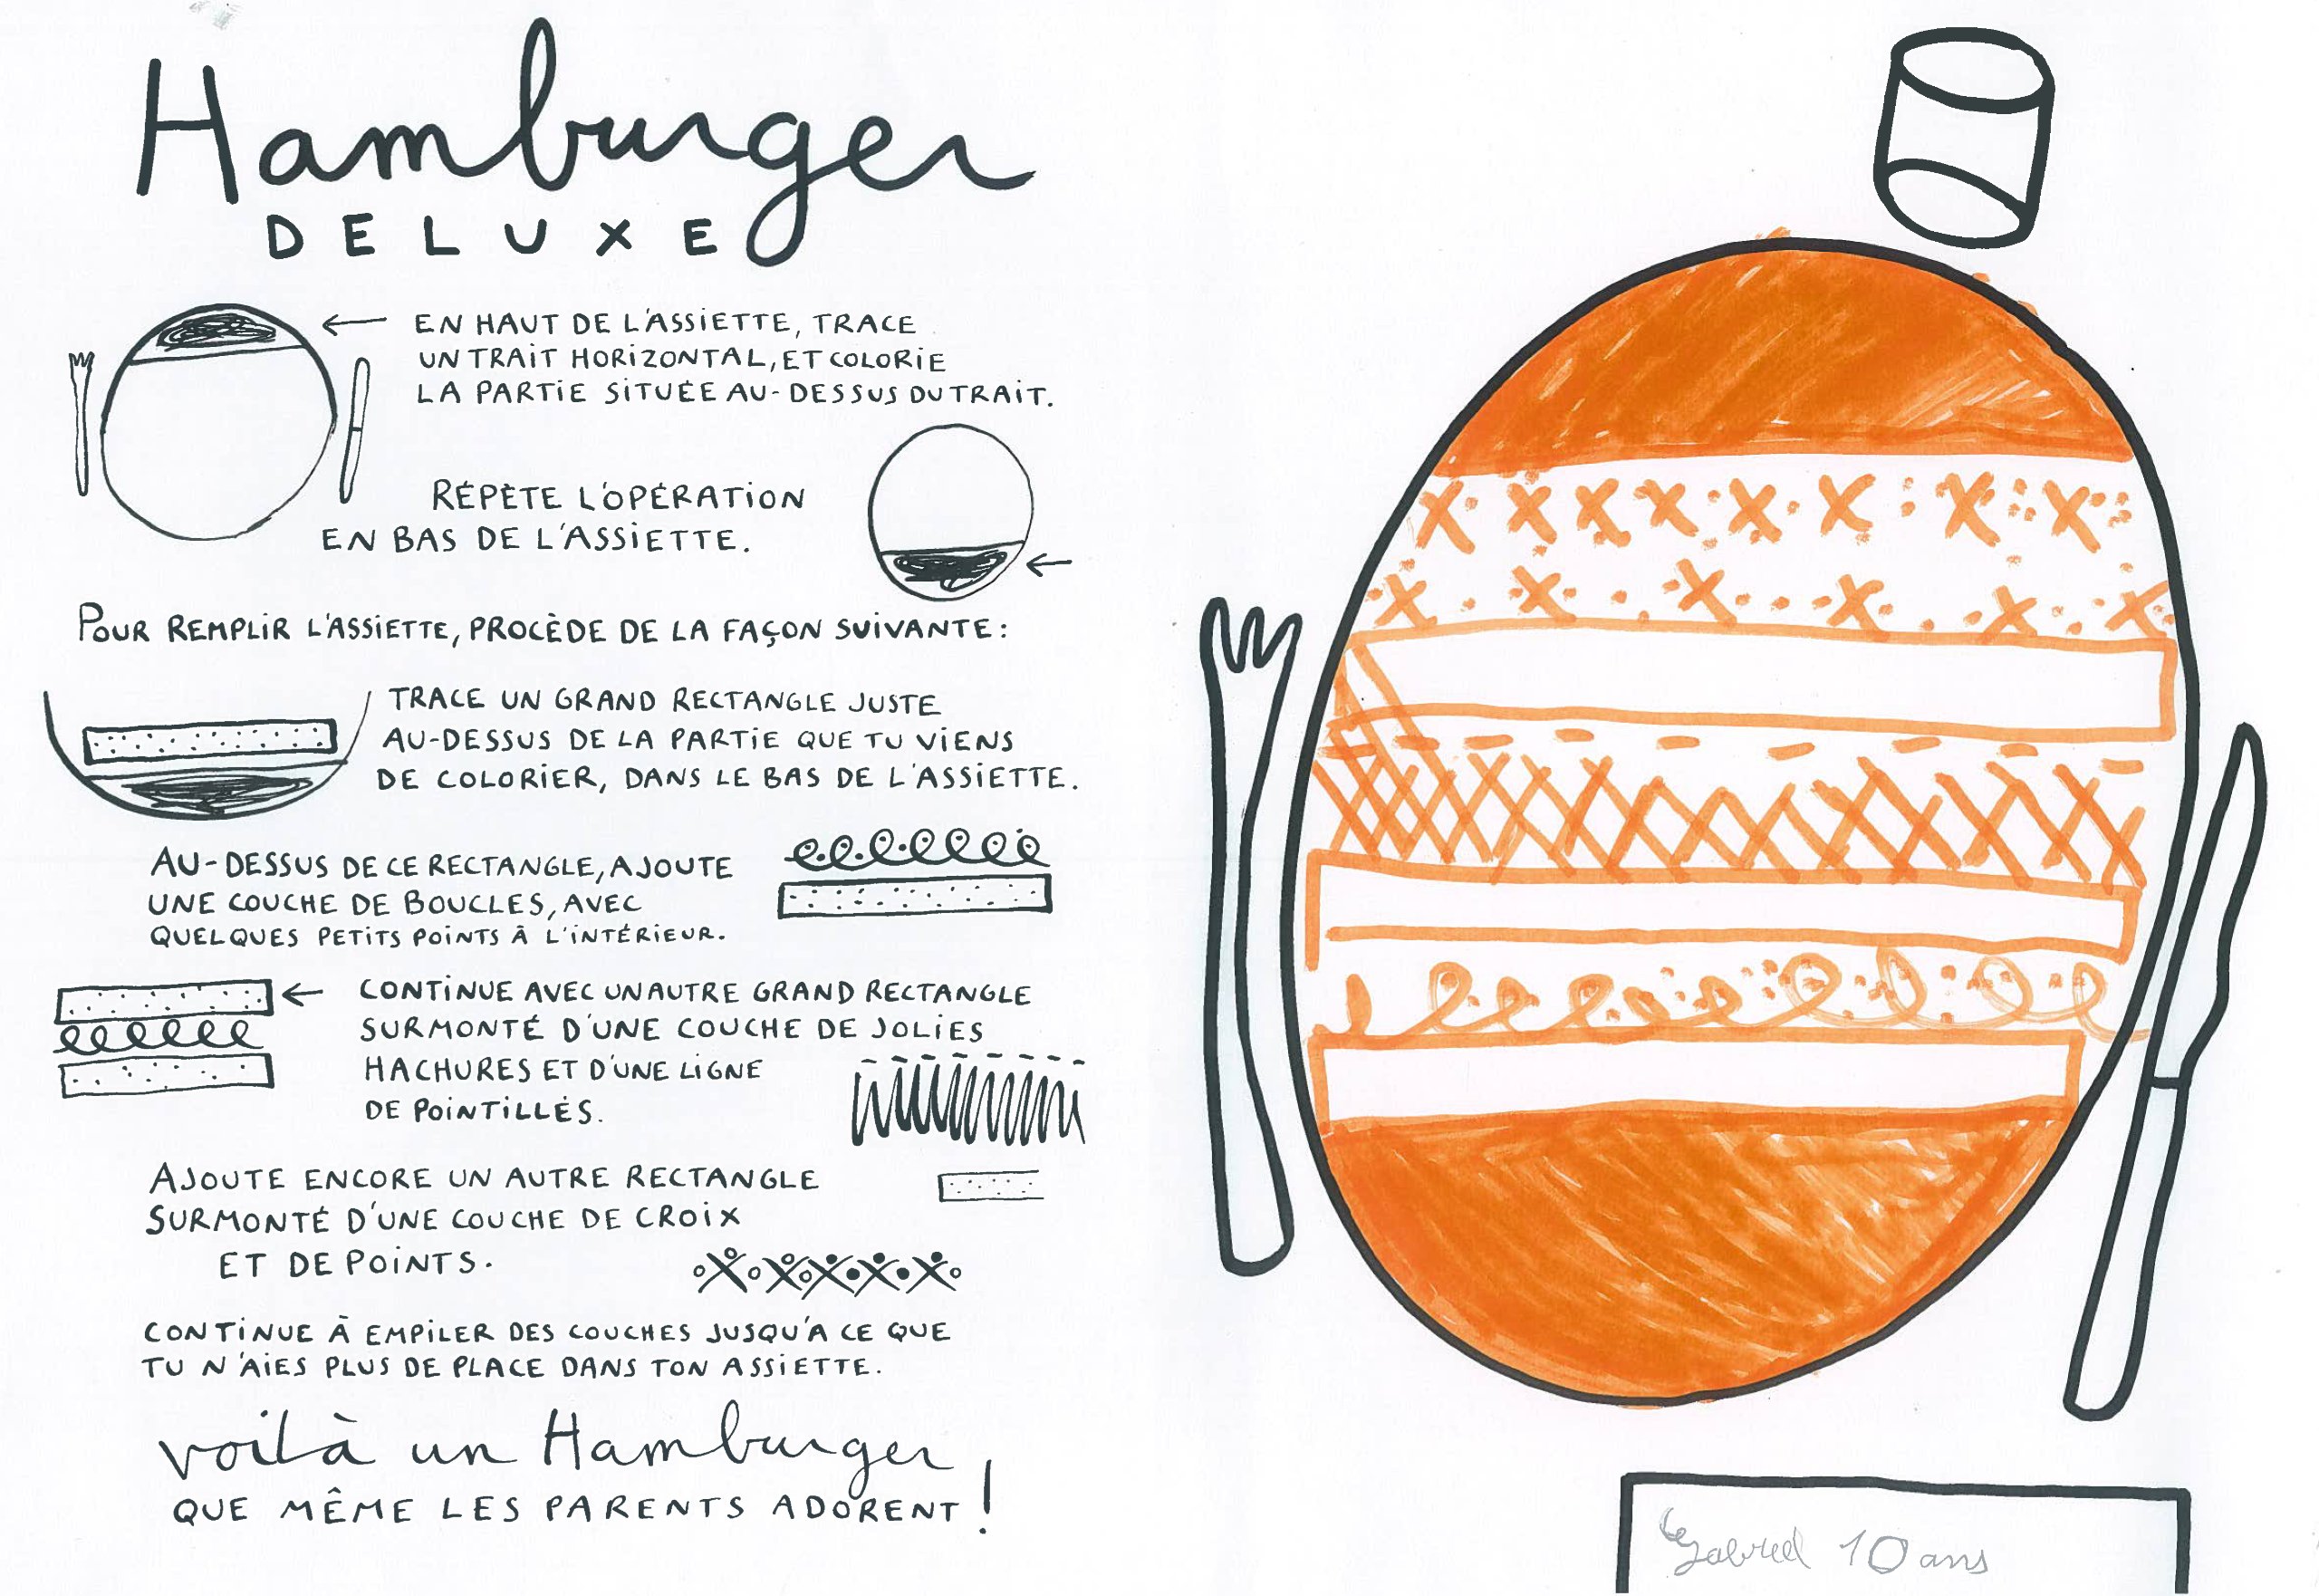 Hamburger
DELUXE
EN HAUT DE L'ASSIETTE, TRACE
UN TRAIT HORIZONTAL, ET COLORIE
LA PARTIE SITUÉE AU-DESSUS DU TRAIT.
RÉPÈTE L'OPÉRATION
EN BAS DE L'ASSIETTE.
POUR REMPLIR L'ASSIETTE, PROCÈDE DE LA FAÇON SUIVANTE:
TRACE UN GRAND RECTANGLE JUSTE
AU-DESSUS DE LA PARTIE QUE TU VIENS
DE COLORIER, DANS LE BAS DE L'ASSIETTE.
AU-DESSUS DE CE RECTANGLE, AJOUTE
UNE COUCHE DE BOUCLES, AVEC
QUELQUES PETITS POINTS À L'INTÉRIEUR.
CONTINUE AVEC UN AUTRE GRAND RECTANGLE
SURMONTÉ D'UNE COUCHE DE JOLIES
HACHURES ET D'UNE LIGNE
DE POINTILLÉS.
AJOUTE ENCORE UN AUTRE RECTANGLE
SURMONTÉ D'UNE COUCHE DE CROIX
ET DE POINTS.
CONTINUE À EMPILER DES COUCHES JUSQU'A CE QUE
TU N'AIES PLUS DE PLACE DANS TON ASSIETTE.
voilà un Hamburger
QUE MÊME LES PARENTS ADORENT !
Gabriel 10 ans